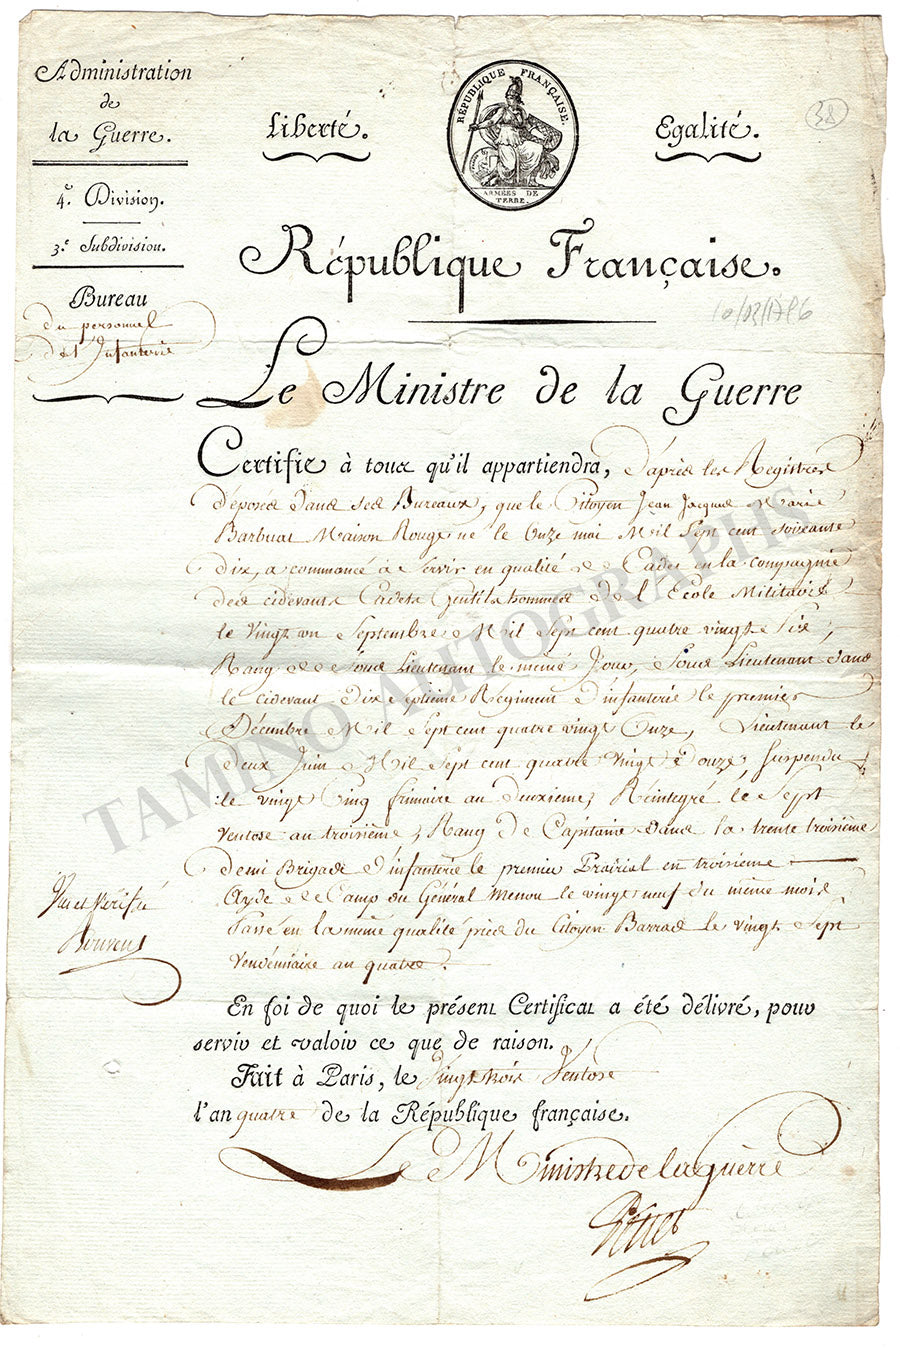 Administration
de
la Guerre.
4.e Division.
3.e Subdivision.
Bureau
du personnel
de l'Infanterie
Liberté.
RÉPUBLIQUE FRANÇAISE.
ARMÉES DE
TERRE.
Egalité.
38
République Française.
10/03/1796
Le Ministre de la Guerre
Certifie à tous qu'il appartiendra, d'après les Registres
déposés dans ses Bureaux, que le Citoyen Jean Jacques Marie
Barbuat Maison Rouge né le Onze mai Mil Sept cent soixante
dix, a commencé à Servir en qualité de Cadet en la compagnie
des cidevants Cadets Gentilshommes de l'Ecole Militaire
le vingt un Septembre Mil Sept cent quatre vingt Six,
Rang de Sous Lieutenant le même Jour, Sous Lieutenant dans
le cidevant Dix Septieme Régiment d'infanterie le premier
Décembre Mil Sept cent quatre vingt Onze, Lieutenant le
deux Juin Mil Sept cent quatre vingt douze, Suspendu
le vingt Cinq frimaire an deuxieme, Réintegré le Sept
Ventose an troisième, Rang de Capitaine dans la trente troisième
demi Brigade d'infanterie le premier Prairial an troisieme
Ayde de Camp du Général Menou le vingt neuf du même mois
Passé en la même qualité près du Citoyen Barras le vingt Sept
Vendémiaire an quatre.
Vu et Vérifié
En foi de quoi le présent Certificat a été délivré, pour
servir et valoir ce que de raison.
Fait à Paris, le Vingt trois Ventose
l'an quatre de la République française.
Le Ministre de la guerre
Petiet
TAMINO AUTOGRAPHS